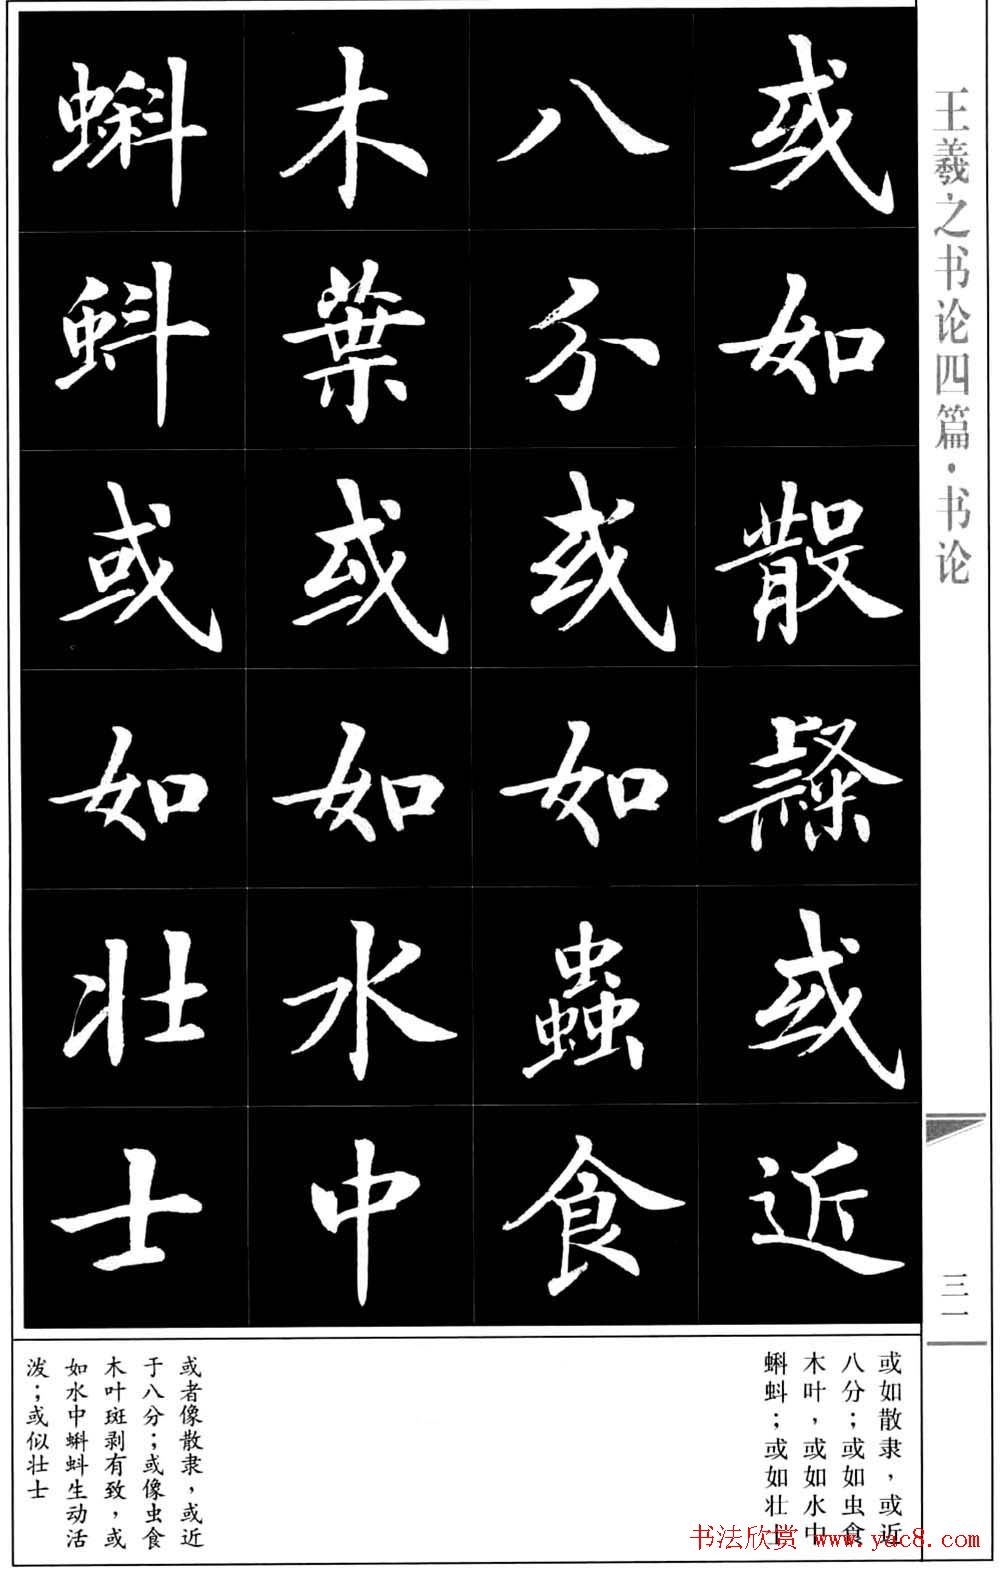 王羲之书论四篇·书论
或如散隸或近
八分或如蟲食
木葉或如水中
蝌蚪或如壮士
三一
或如散隶，或近
八分；或如虫食
木叶，或如水中
蝌蚪；或如壮士
或者像散隶，或近
于八分；或像虫食
木叶斑剥有致，或
如水中蝌蚪生动活
泼；或似壮士
书法欣赏 www.yac8.com